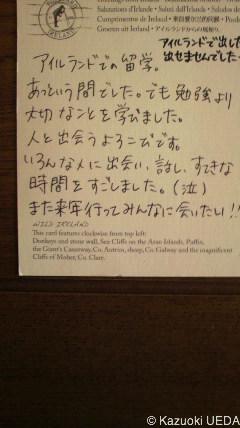 IRELAND
Salutations d'Irlande • Saludos de
Cumprimentos de Ireland • 来自愛尔兰的祝福 •
Groeten uit Ierland • アイルランドからの
アイルランドで出した
出せませんでした
アイルランドでの留学。
あっという間でした。でも勉強より
大切なことを学びました。
人と出会うよろこびです。
いろんな人に出会い、話し、すてきな
時間をすごしました。(泣)
また来年行ってみんなに会いたい!!
WILD IRELAND
This card features clockwise from top left:
Donkeys and stone wall, Sea Cliffs on the Aran Islands, Puffin,
the Giant's Causeway, Co. Antrim, sheep, Co. Galway and the magnificent
Cliffs of Moher, Co. Clare.
© Kazuoki UEDA